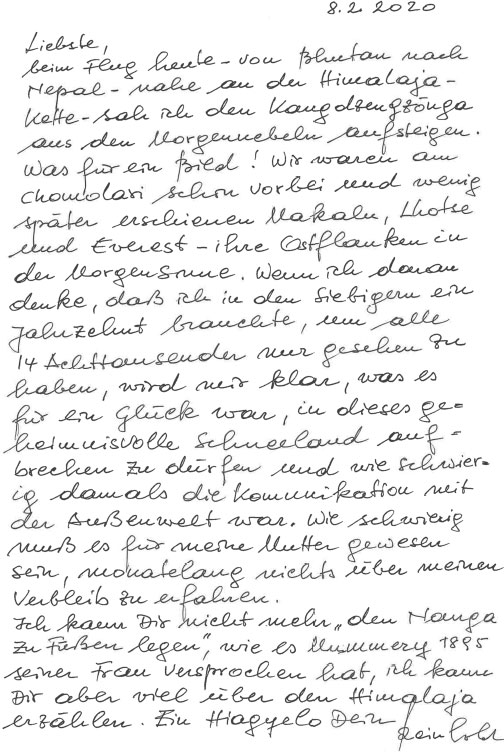 8.2.2020
Liebste,
beim Flug heute – von Bhutan nach
Nepal – nahe an der Himalaja-
Kette – sah ich den Kangdsengzönga
aus den Morgennebeln aufsteigen.
Was für ein Bild! Wir waren am
Chomolari schon vorbei und wenig
später erschienen Makalu, Lhotse
und Everest – ihre Ostflanken in
der Morgensonne. Wenn ich daran
denke, daß ich in den Siebigern ein
Jahrzehnt brauchte, um alle
14 Achttausender nur gesehen zu
haben, wird mir klar, was es
für ein Glück war, in dieses ge-
heimnisvolle Schneeland auf-
brechen zu dürfen und wie schwier-
ig damals die Kommunikation mit
der Außenwelt war. Wie schwierig
muß es für meine Mutter gewesen
sein, monatelang nichts über meinen
Verbleib zu erfahren.
Ich kann Dir nicht mehr „den Nanga
zu Füßen legen", wie es Mummery 1895
seiner Frau versprochen hat, ich kann
Dir aber viel über den Himalaja
erzählen. Ein Hiagyelo Dein
Reinhold